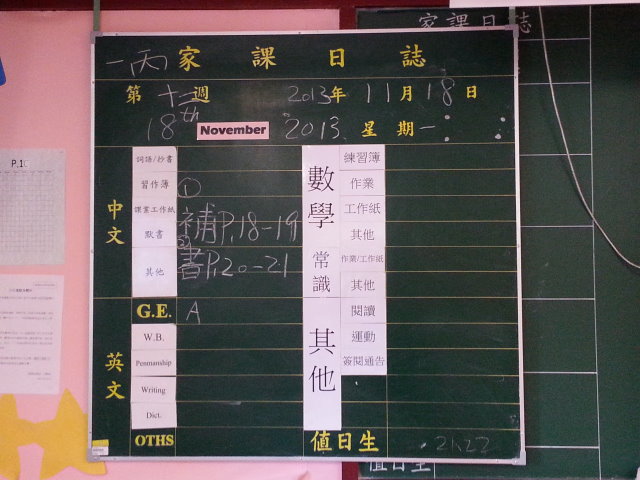 家課日誌
一丙 家課日誌
第十二週 2013年11月18日
18th November 2013 星期一
P.10
中文
詞語/抄書
習作簿 ①
課業工作紙 補P.18-19
默書 ②
其他 書P.20-21
G.E. A
英文
W.B.
Penmanship
Writing
Dict.
OTHS
數學
練習簿
作業
工作紙
其他
常識
作業/工作紙
其他
其他
閱讀
運動
簽閱通告
值日生 2,22
值日生